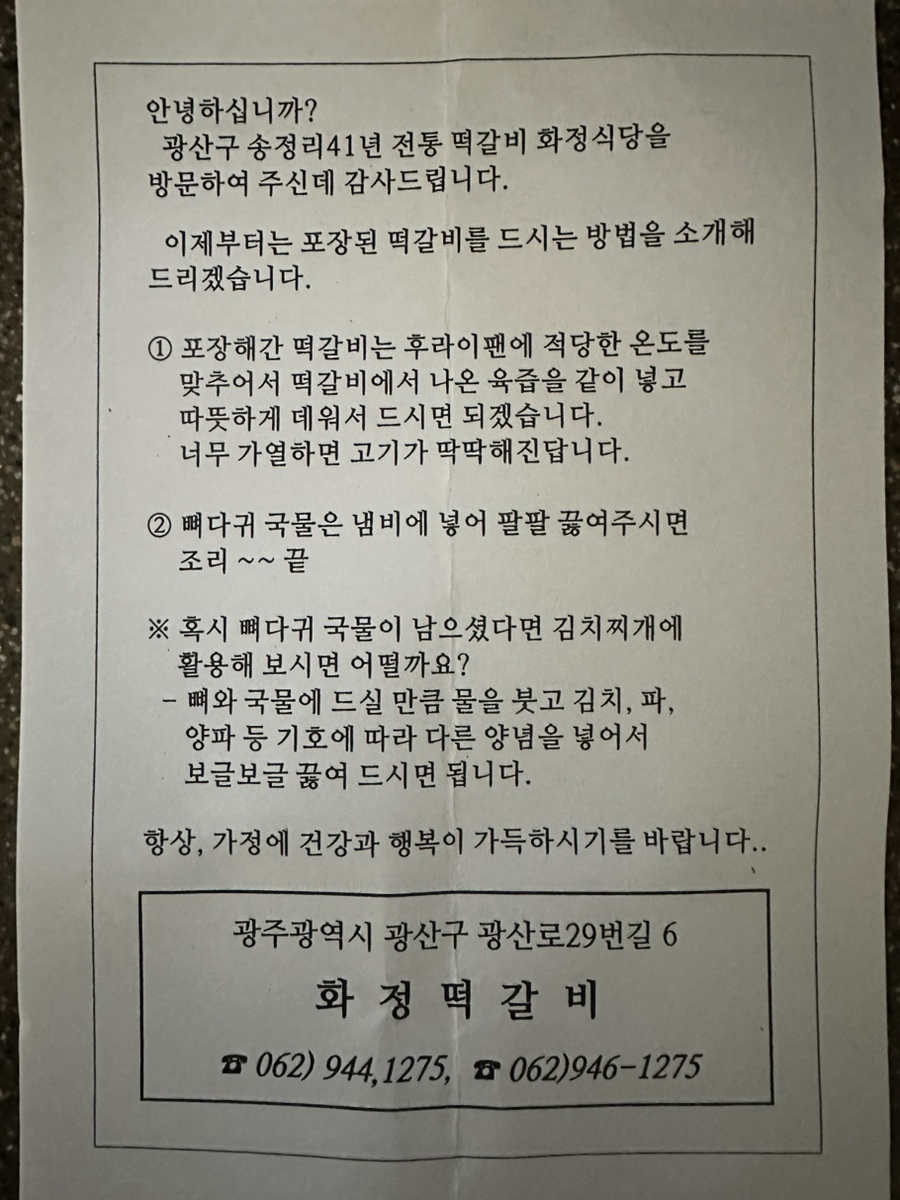 안녕하십니까?
광산구 송정리41년 전통 떡갈비 화정식당을
방문하여 주신데 감사드립니다.
이제부터는 포장된 떡갈비를 드시는 방법을 소개해
드리겠습니다.
① 포장해간 떡갈비는 후라이팬에 적당한 온도를
맞추어서 떡갈비에서 나온 육즙을 같이 넣고
따뜻하게 데워서 드시면 되겠습니다.
너무 가열하면 고기가 딱딱해진답니다.
② 뼈다귀 국물은 냄비에 넣어 팔팔 끓여주시면
조리 ~~ 끝
※ 혹시 뼈다귀 국물이 남으셨다면 김치찌개에
활용해 보시면 어떨까요?
- 뼈와 국물에 드실 만큼 물을 붓고 김치, 파,
양파 등 기호에 따라 다른 양념을 넣어서
보글보글 끓여 드시면 됩니다.
항상, 가정에 건강과 행복이 가득하시기를 바랍니다..
광주광역시 광산구 광산로29번길 6
화 정 떡 갈 비
☎ 062) 944,1275, ☎ 062)946-1275